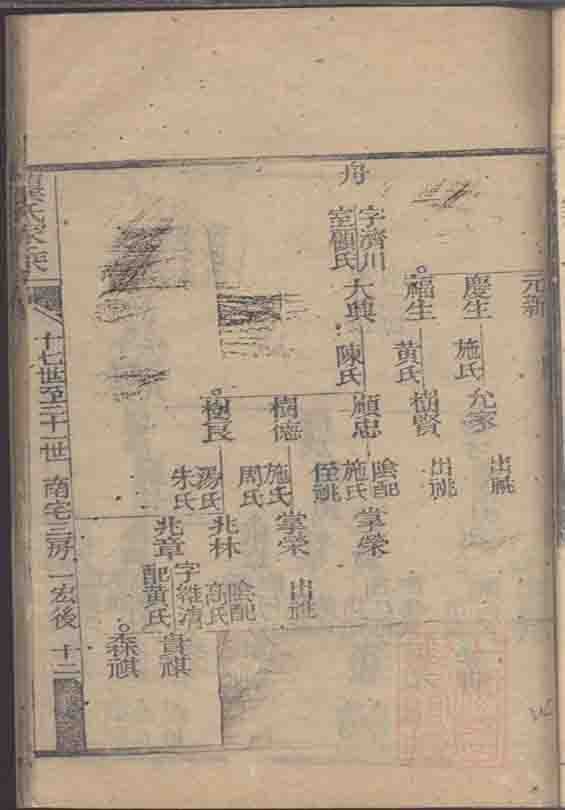 元新
慶生
施氏
允家
出祧
福生
黃氏
樹賢
出祧
舟
字濟川
室顧氏
大興
陳氏
顧忠
陰配
施氏
侄祧
掌榮
樹德
施氏
周氏
掌榮
出祧
樹良
湯氏
朱氏
兆林
陰配
高氏
兆章
字維清
配黃氏
貴祺
森祺
氏家乘
十七世至二十一世 南宅三房 一宏後 十二